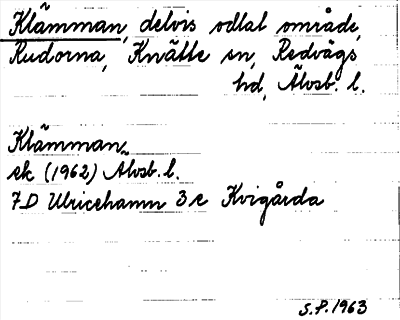 Klämman, delvis odlat område,
Rudorna, Knätte sn, Redvägs
hd, Älvsb. l.
Klämman,
ek (1962) Älvsb. l.
7D Ulricehamn 3 e Kvigårda
S.P. 1963